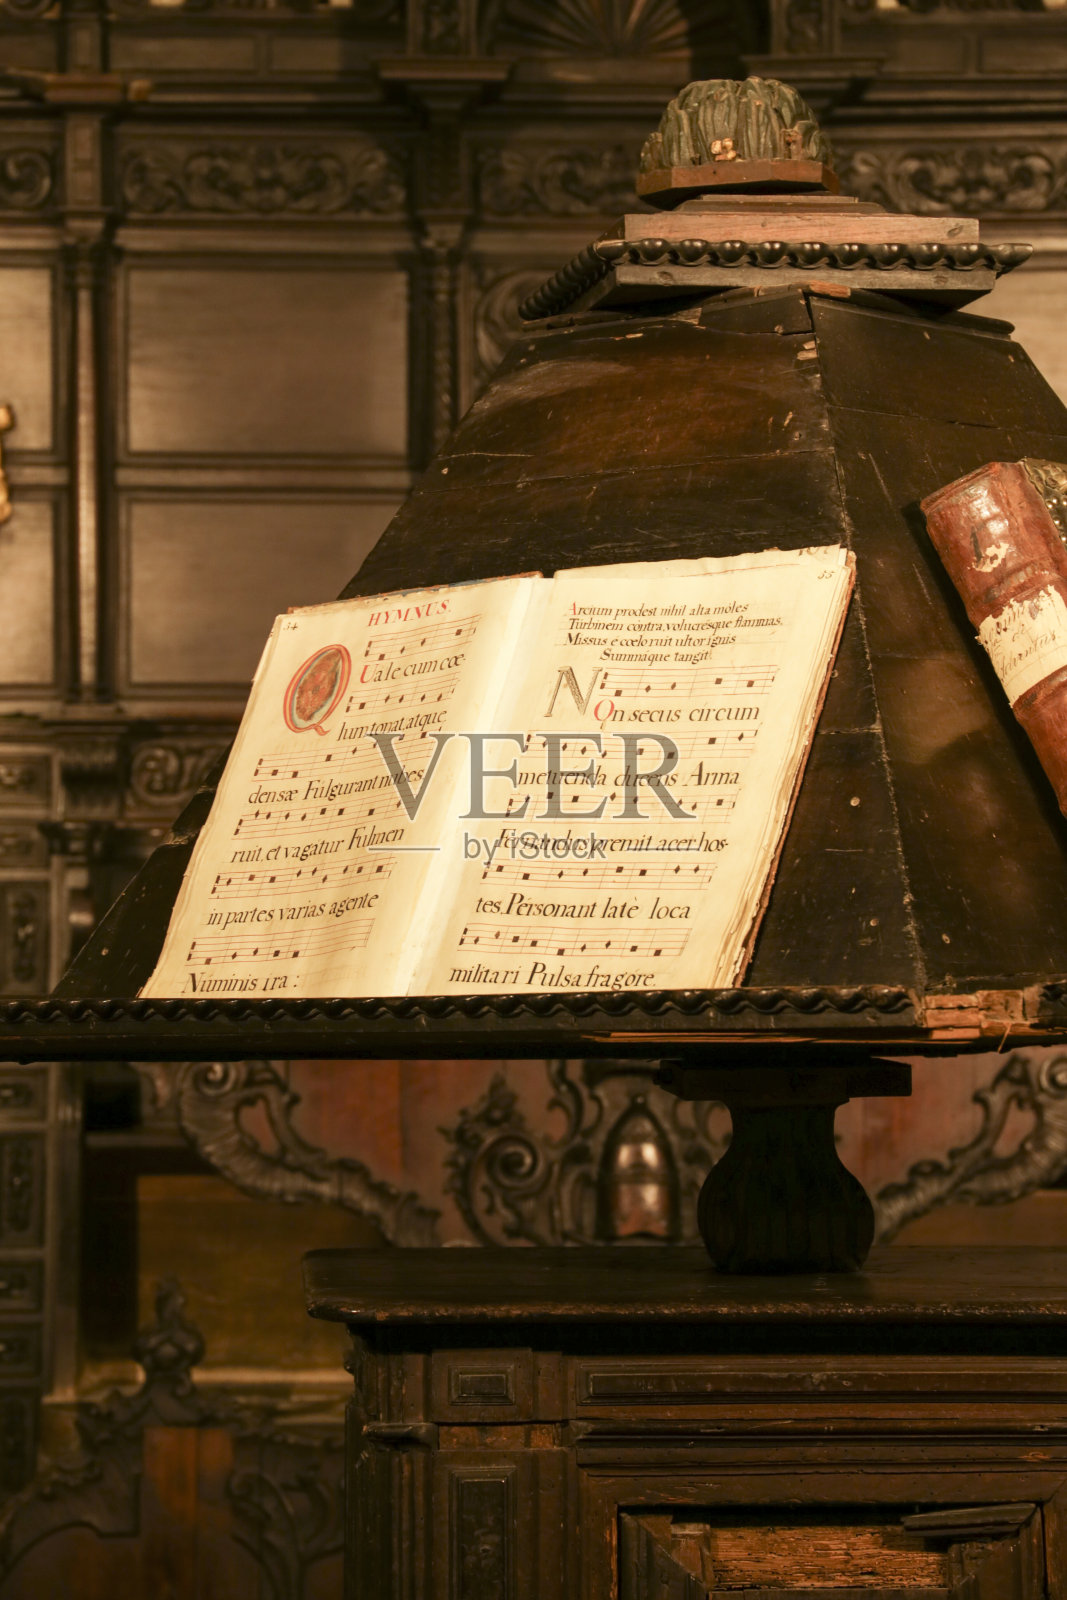 34
HYMNUS.
QUale cum coe-
lum tonat, atque
densæ Fulgurant nubes,
ruit, et vagatur Fulmen
in partes varias agente
Numinis ira :
55
Arcium prodest nihil alta môles
Turbinem contra, volucresque flammas,
Missus è coelo ruit ultor ignis
Summáque tangit.
NOn secus circum
metuenda ducens Arma
Fernandus premit acer hos-
tes, Pérsonant latè loca
militari Pulsa fragore.
1.
VEER
by iStock